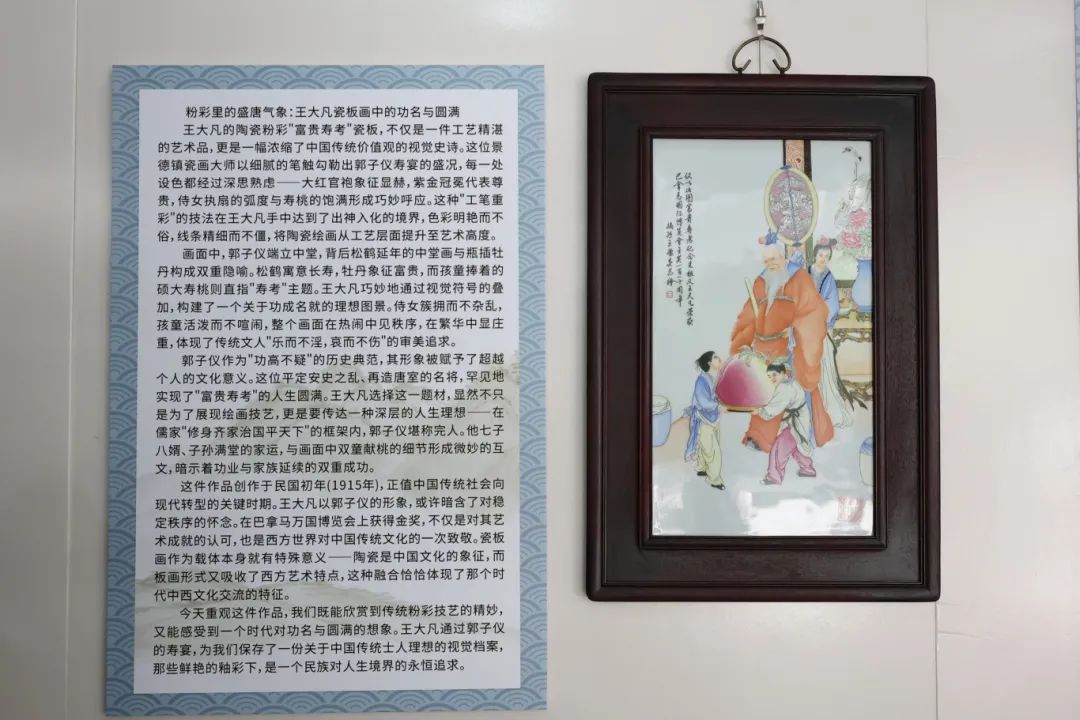 粉彩里的盛唐气象：王大凡瓷板画中的功名与圆满
王大凡的陶瓷粉彩"富贵寿考"瓷板，不仅是一件工艺精湛
的艺术品，更是一幅浓缩了中国传统价值观的视觉史诗。这位景
德镇瓷画大师以细腻的笔触勾勒出郭子仪寿宴的盛况，每一处
设色都经过深思熟虑——大红官袍象征显赫，紫金冠冕代表尊
贵，侍女执扇的弧度与寿桃的饱满形成巧妙呼应。这种"工笔重
彩"的技法在王大凡手中达到了出神入化的境界，色彩明艳而不
俗，线条精细而不僵，将陶瓷绘画从工艺层面提升至艺术高度。
画面中，郭子仪端立中堂，背后松鹤延年的中堂画与瓶插牡
丹构成双重隐喻。松鹤寓意长寿，牡丹象征富贵，而孩童捧着的
硕大寿桃则直指"寿考"主题。王大凡巧妙地通过视觉符号的叠
加，构建了一个关于功成名就的理想图景。侍女簇拥而不杂乱，
孩童活泼而不喧闹，整个画面在热闹中见秩序，在繁华中显庄
重，体现了传统文人"乐而不淫，哀而不伤"的审美追求。
郭子仪作为"功高不疑"的历史典范，其形象被赋予了超越
个人的文化意义。这位平定安史之乱、再造唐室的名将，罕见地
实现了"富贵寿考"的人生圆满。王大凡选择这一题材，显然不只
是为了展现绘画技艺，更是要传达一种深层的人生理想——在
儒家"修身齐家治国平天下"的框架内，郭子仪堪称完人。他七子
八婿、子孙满堂的家运，与画面中双童献桃的细节形成微妙的互
文，暗示着功业与家族延续的双重成功。
这件作品创作于民国初年(1915年)，正值中国传统社会向
现代转型的关键时期。王大凡以郭子仪的形象，或许暗含了对稳
定秩序的怀念。在巴拿马万国博览会上获得金奖，不仅是对其艺
术成就的认可，也是西方世界对中国传统文化的一次致敬。瓷板
画作为载体本身就有特殊意义——陶瓷是中国文化的象征，而
板画形式又吸收了西方艺术特点，这种融合恰恰体现了那个时
代中西文化交流的特征。
今天重观这件作品，我们既能欣赏到传统粉彩技艺的精妙，
又能感受到一个时代对功名与圆满的想象。王大凡通过郭子仪
的寿宴，为我们保存了一份关于中国传统士人理想的视觉档案，
那些鲜艳的釉彩下，是一个民族对人生境界的永恒追求。